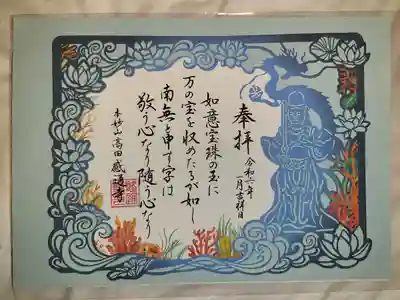 奉拝
令和六年
一月吉祥日
如意宝珠の玉に
万の宝を収めたるが如し
南無と申す字は
敬う心なり随う心なり
本妙山高田感通寺